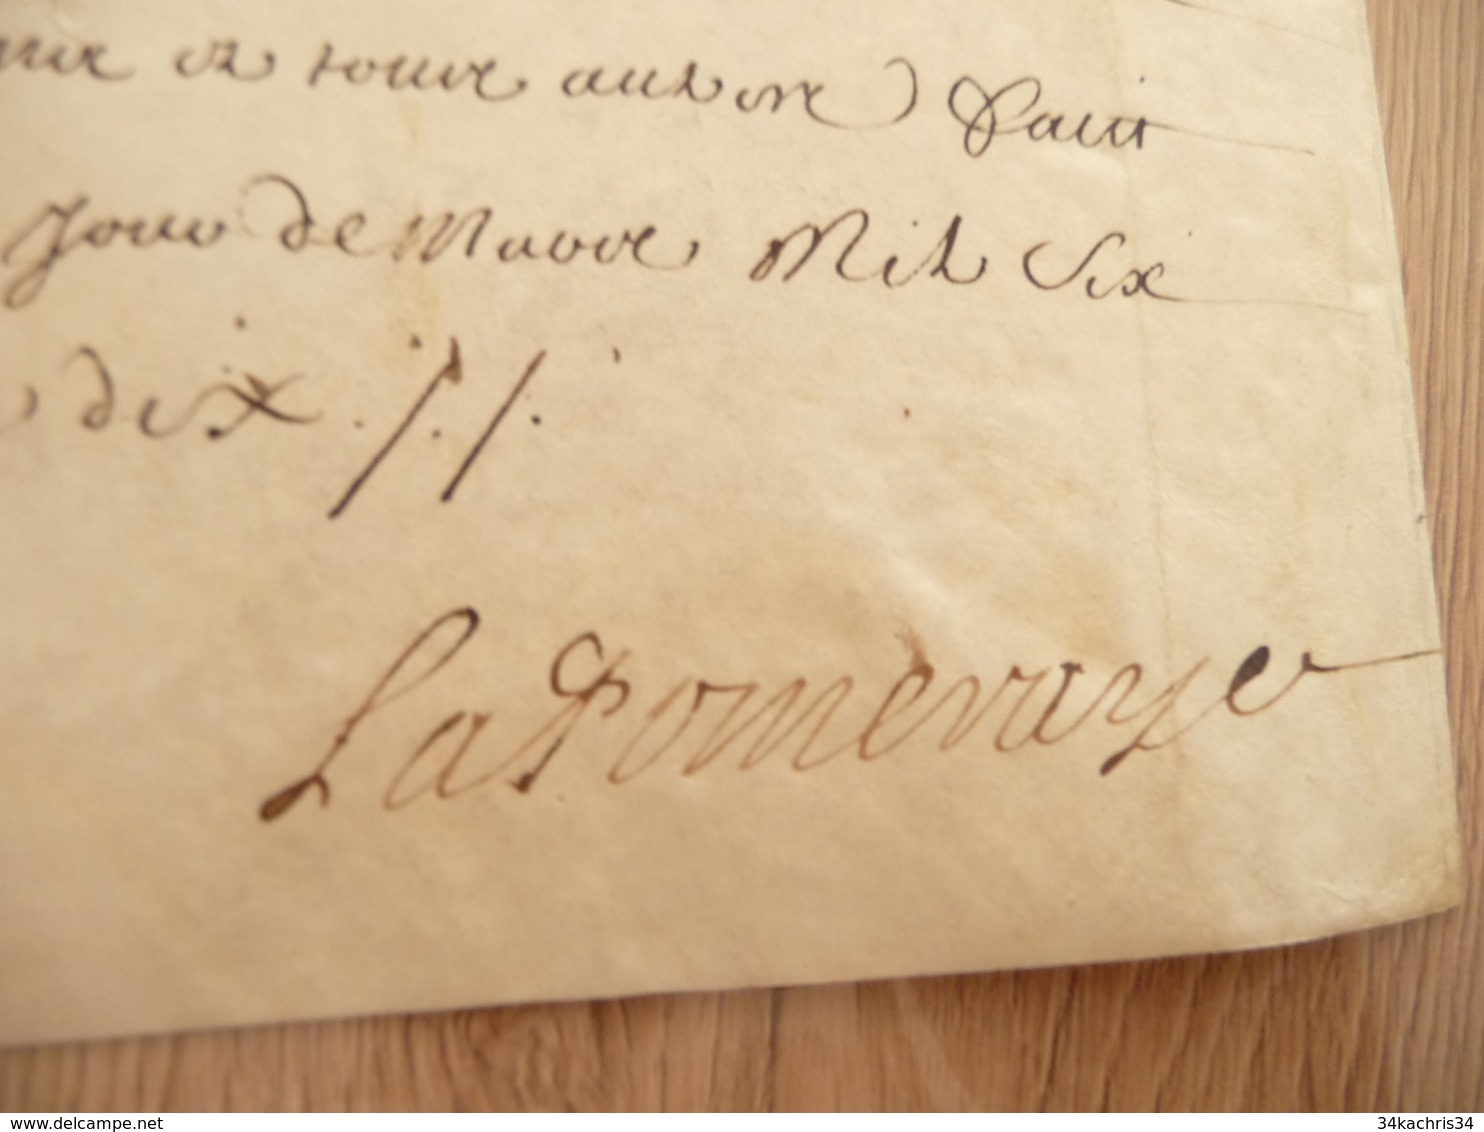 et tout autre Faict
Jour de Mars Mil Six
dix ././.
LaPomeraye
www.delcampe.net
34kachris34